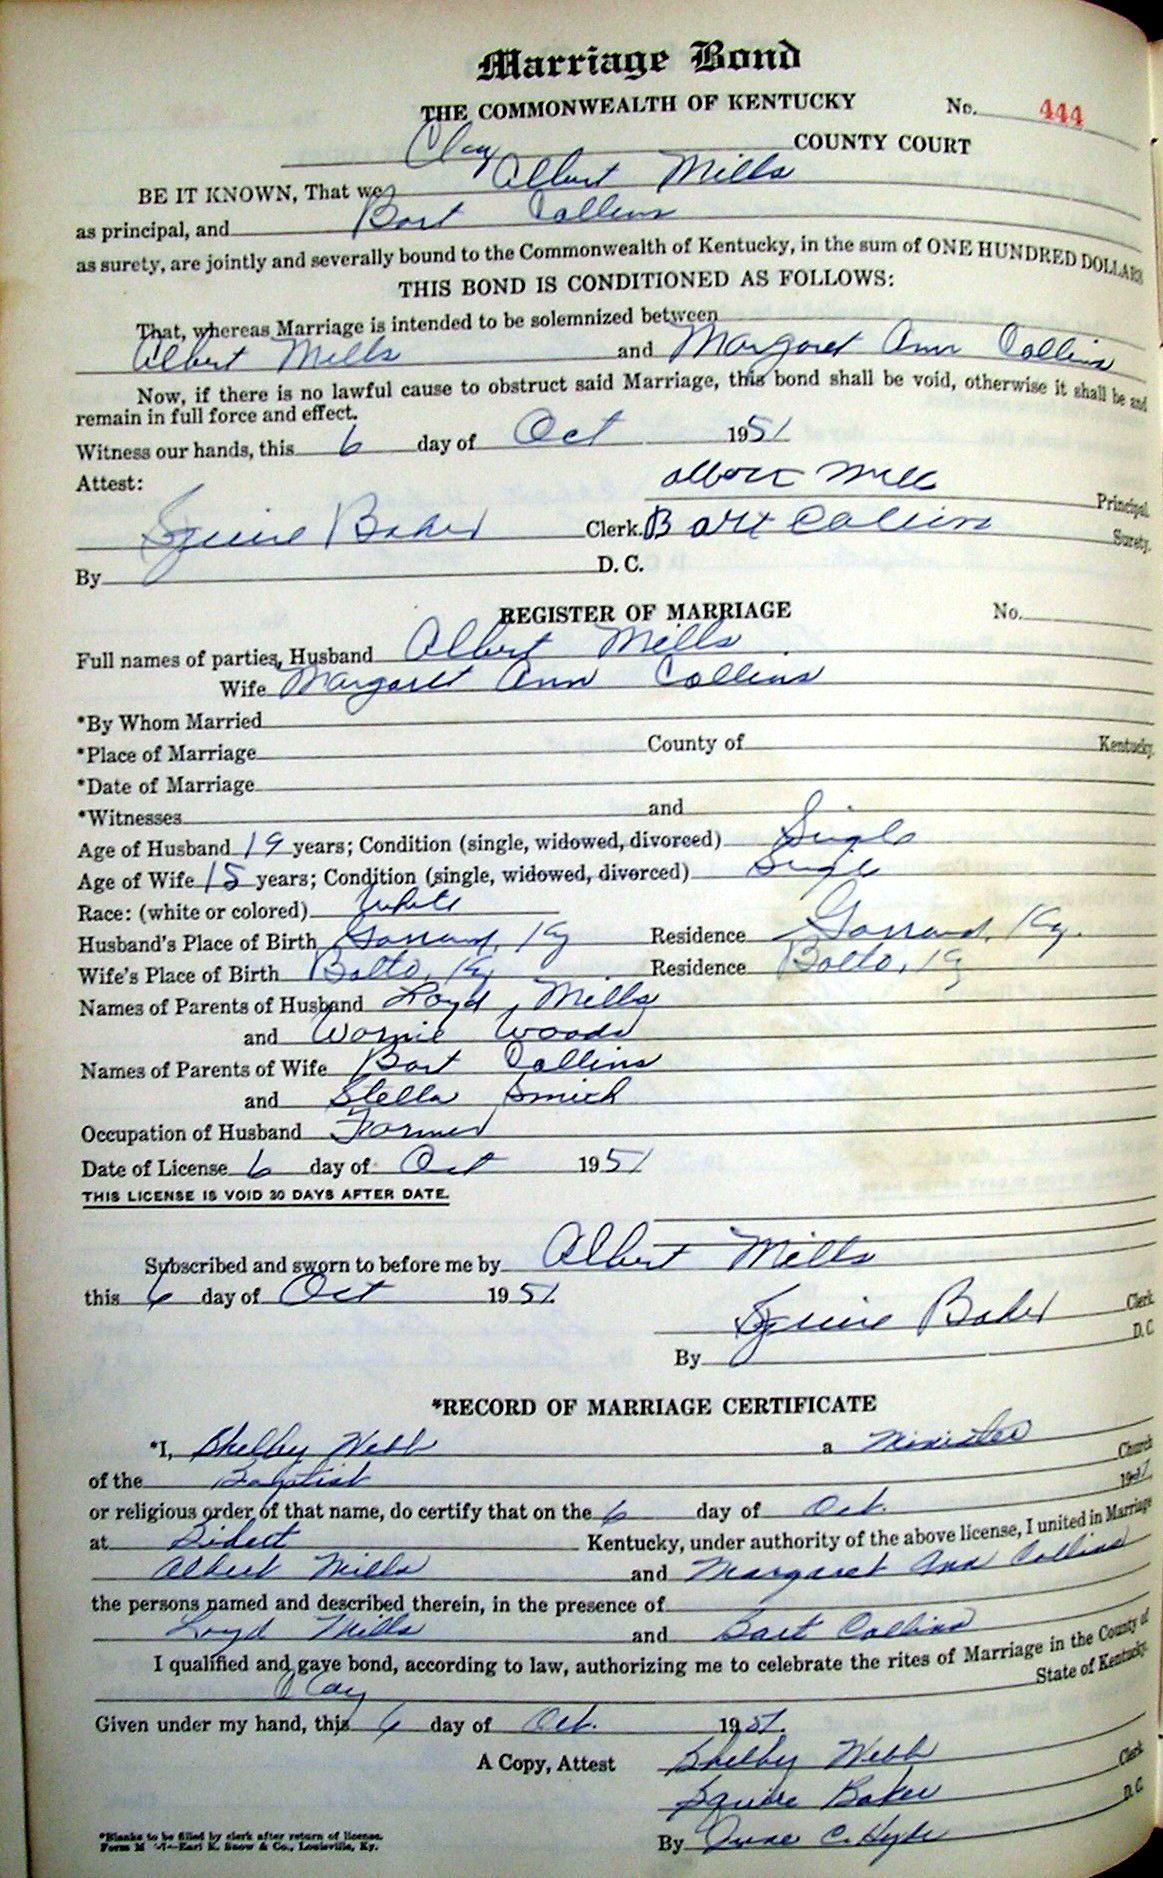 Marriage Bond
THE COMMONWEALTH OF KENTUCKY No. 444
Clay COUNTY COURT
BE IT KNOWN, That we Albert Mills
as principal, and Bart Collins
as surety, are jointly and severally bound to the Commonwealth of Kentucky, in the sum of ONE HUNDRED DOLLARS
THIS BOND IS CONDITIONED AS FOLLOWS:
That, whereas Marriage is intended to be solemnized between
Albert Mills and Margaret Ann Collins
Now, if there is no lawful cause to obstruct said Marriage, this bond shall be void, otherwise it shall be and
remain in full force and effect.
Witness our hands, this 6 day of Oct 1951
Attest: Albert Mill Principal.
Squire Baker Clerk. Bart Collins Surety.
By D. C.
REGISTER OF MARRIAGE No.
Full names of parties, Husband Albert Mills
Wife Margaret Ann Collins
*By Whom Married
*Place of Marriage County of Kentucky.
*Date of Marriage
*Witnesses and
Age of Husband 19 years; Condition (single, widowed, divorced) Single
Age of Wife 15 years; Condition (single, widowed, divorced) Single
Race: (white or colored) White
Husband's Place of Birth Garrard, Ky Residence Garrard, Ky.
Wife's Place of Birth Balto, Ky Residence Balto, Ky
Names of Parents of Husband Loyd Mills
and Woods
Names of Parents of Wife Bart Collins
and Stella Smith
Occupation of Husband Farmer
Date of License 6 day of Oct 1951
THIS LICENSE IS VOID 30 DAYS AFTER DATE.
Subscribed and sworn to before me by Albert Mills
this 6 day of Oct 1951.
Squire Baker Clerk
By D.C
*RECORD OF MARRIAGE CERTIFICATE
*I, Shelby Webb a Minister
of the Baptist Church
or religious order of that name, do certify that on the 6 day of Oct. 1951
at Kentucky, under authority of the above license, I united in Marriage
Albert Mills and Margaret Ann Collins
the persons named and described therein, in the presence of
Loyd Mills and Bart Collins
I qualified and gave bond, according to law, authorizing me to celebrate the rites of Marriage in the County of
Clay State of Kentucky.
Given under my hand, this 6 day of Oct. 1951.
A Copy, Attest Shelby Webb
Squire Baker Clerk
By June C. D.C
*Blanks to be filled by clerk after return of license.
Form M Earl K. Snow & Co., Louisville, Ky.